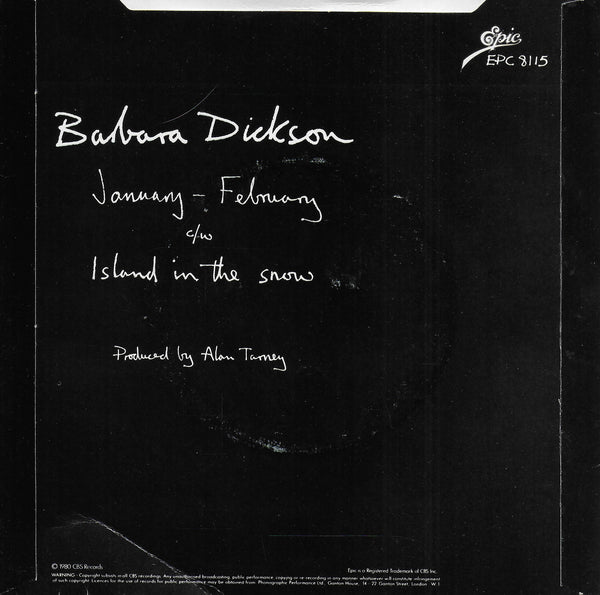 Epic
EPC 8115
Barbara Dickson
January - February
c/w
Island in the snow
Produced by Alan Tarney
© 1980 CBS Records
Epic is a Registered Trademark of CBS Inc.
WARNING - Copyright subsists in all CBS recordings. Any unauthorised broadcasting, public performance, copying or re-recording in any manner whatsoever will constitute infringement
of such copyright. Licences for the use of records for public performance may be obtained from Phonographic Performance Ltd., Ganton House, 14 - 22 Ganton Street, London W.1